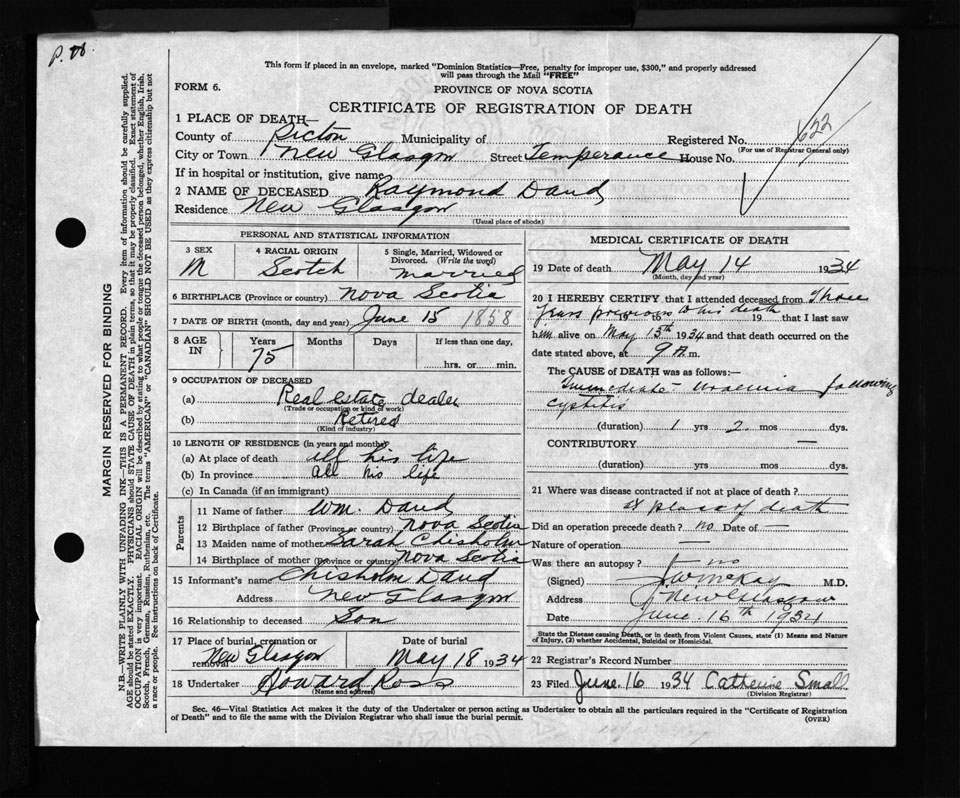 P.
This form if placed in an envelope, marked "Dominion Statistics—Free, penalty for improper use, $300," and properly addressed
will pass through the Mail "FREE"
FORM 6.
PROVINCE OF NOVA SCOTIA
CERTIFICATE OF REGISTRATION OF DEATH
1 PLACE OF DEATH—
County of Pictou Municipality of Registered No. 622
(For use of Registrar General only)
City or Town New Glasgow Street Temperance House No.
If in hospital or institution, give name
2 NAME OF DECEASED Raymond David
Residence New Glasgow
(Usual place of abode)
PERSONAL AND STATISTICAL INFORMATION
3 SEX M
4 RACIAL ORIGIN Scotch
5 Single, Married, Widowed or Divorced. (Write the word) married
6 BIRTHPLACE (Province or country) Nova Scotia
7 DATE OF BIRTH (month, day and year) June 15 1858
8 AGE IN Years 75 Months Days If less than one day,
hrs. or min.
9 OCCUPATION OF DECEASED
(a) Real estate dealer
(Trade or occupation or kind of work)
(b) Retired
(Kind of industry)
10 LENGTH OF RESIDENCE (in years and months)
(a) At place of death all his life
(b) In province all his life
(c) In Canada (if an immigrant)
Parents
11 Name of father Wm. David
12 Birthplace of father (Province or country) Nova Scotia
13 Maiden name of mother Sarah Chisholm
14 Birthplace of mother (Province or country) Nova Scotia
15 Informant's name Chisholm David
Address New Glasgow
16 Relationship to deceased Son
17 Place of burial, cremation or removal New Glasgow
Date of burial May 18 1934
18 Undertaker Howard Ross
(Name and address)
MEDICAL CERTIFICATE OF DEATH
19 Date of death May 14 1934
(Month, day and year)
20 I HEREBY CERTIFY that I attended deceased from Three
years previous to his death 19 19 that I last saw
him alive on May 13th 1934 and that death occurred on the
date stated above, at 9 A.m.
The CAUSE of DEATH was as follows:—
Immediate - Uraemia following
cystitis
(duration) 1 yrs 2 mos dys.
CONTRIBUTORY —
(duration) yrs mos dys.
21 Where was disease contracted if not at place of death?
at place of death
Did an operation precede death? no Date of —
Nature of operation —
Was there an autopsy? no
(Signed) J W McKay M.D.
Address New Glasgow
Date June 16th 1934
State the Disease causing Death, or in death from Violent Causes, state (1) Means and Nature
of Injury, (2) whether Accidental, Suicidal or Homicidal.
22 Registrar's Record Number
23 Filed June 16 1934 Catherine Small
(Division Registrar)
Sec. 46—Vital Statistics Act makes it the duty of the Undertaker or person acting as Undertaker to obtain all the particulars required in the "Certificate of Registration
of Death" and to file the same with the Division Registrar who shall issue the burial permit.
(OVER)
MARGIN RESERVED FOR BINDING
N.B.—WRITE PLAINLY WITH UNFADING INK—THIS IS A PERMANENT RECORD. Every item of information should be carefully supplied.
AGE should be stated EXACTLY. PHYSICIANS should STATE CAUSE OF DEATH in plain terms, so that it may be properly classified. Exact statement of
OCCUPATION is very important. RACIAL ORIGIN will be described by stating to what people or tongue the deceased person belonged, whether English, Irish,
Scotch, French, German, Russian, Ruthenian, etc. The terms "AMERICAN" or "CANADIAN" SHOULD NOT BE USED as they express citizenship but not
a race or people. See instructions on back of Certificate.